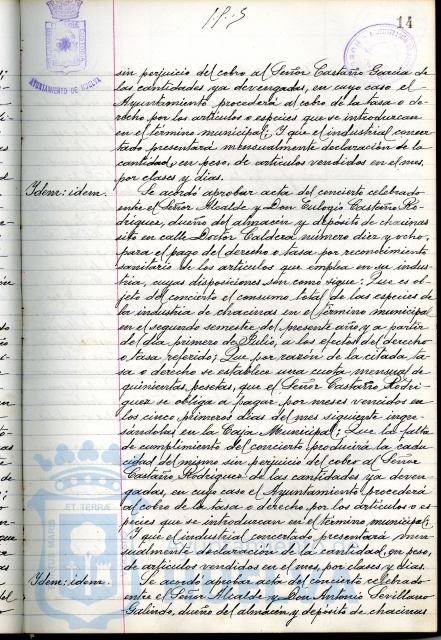 14
AYUNTAMIENTO DE HUELVA
sin perjuicio del cobro al Señor Castaño García de
las cantidades ya devengadas, en cuyo caso el
Ayuntamiento procederá al cobro de la tasa o de-
recho por los artículos o especies que se introduzcan
en el término municipal; Y que el industrial concer-
tado presentará mensualmente declaración de la
cantidad, en peso, de artículos vendidos en el mes,
por clases y días.
Idem: idem.
Se acordó aprobar acta del concierto celebrado
entre el Señor Alcalde y Don Eulogio Castaño Ro-
dríguez, dueño del almacén y depósito de chacinas
sito en calle Doctor Caldera número diez y ocho,
para el pago del derecho o tasa por reconocimiento
sanitario de los artículos que emplea en su indus-
tria, cuyas disposiciones son como sigue: Que es ob-
jeto del concierto el consumo total de las especies de
la industria de chacinas en el término municipal
en el segundo semestre del presente año y a partir
del día primero de Julio, a los efectos del derecho
o tasa referido; Que por razón de la citada ta-
sa o derecho se establece una cuota mensual de
quinientas pesetas, que el Señor Castaño Rodrí-
guez se obliga a pagar por meses vencidos en
los cinco primeros días del mes siguiente ingre-
sándolas en la Caja Municipal; Que la falta
de cumplimiento del concierto producirá la cadu-
cidad del mismo sin perjuicio del cobro al Señor
Castaño Rodríguez de las cantidades ya deven-
gadas, en cuyo caso el Ayuntamiento procederá
al cobro de la tasa o derecho por los artículos o es-
pecies que se introduzcan en el término municipal;
Y que el industrial concertado presentará men-
sualmente declaración de la cantidad, en peso,
de artículos vendidos en el mes, por clases y días.
Idem: idem.
Se acordó aprobar acta del concierto celebrado
entre el Señor Alcalde y Don Antonio Sevillano
Galindo, dueño del almacén y depósito de chacinas